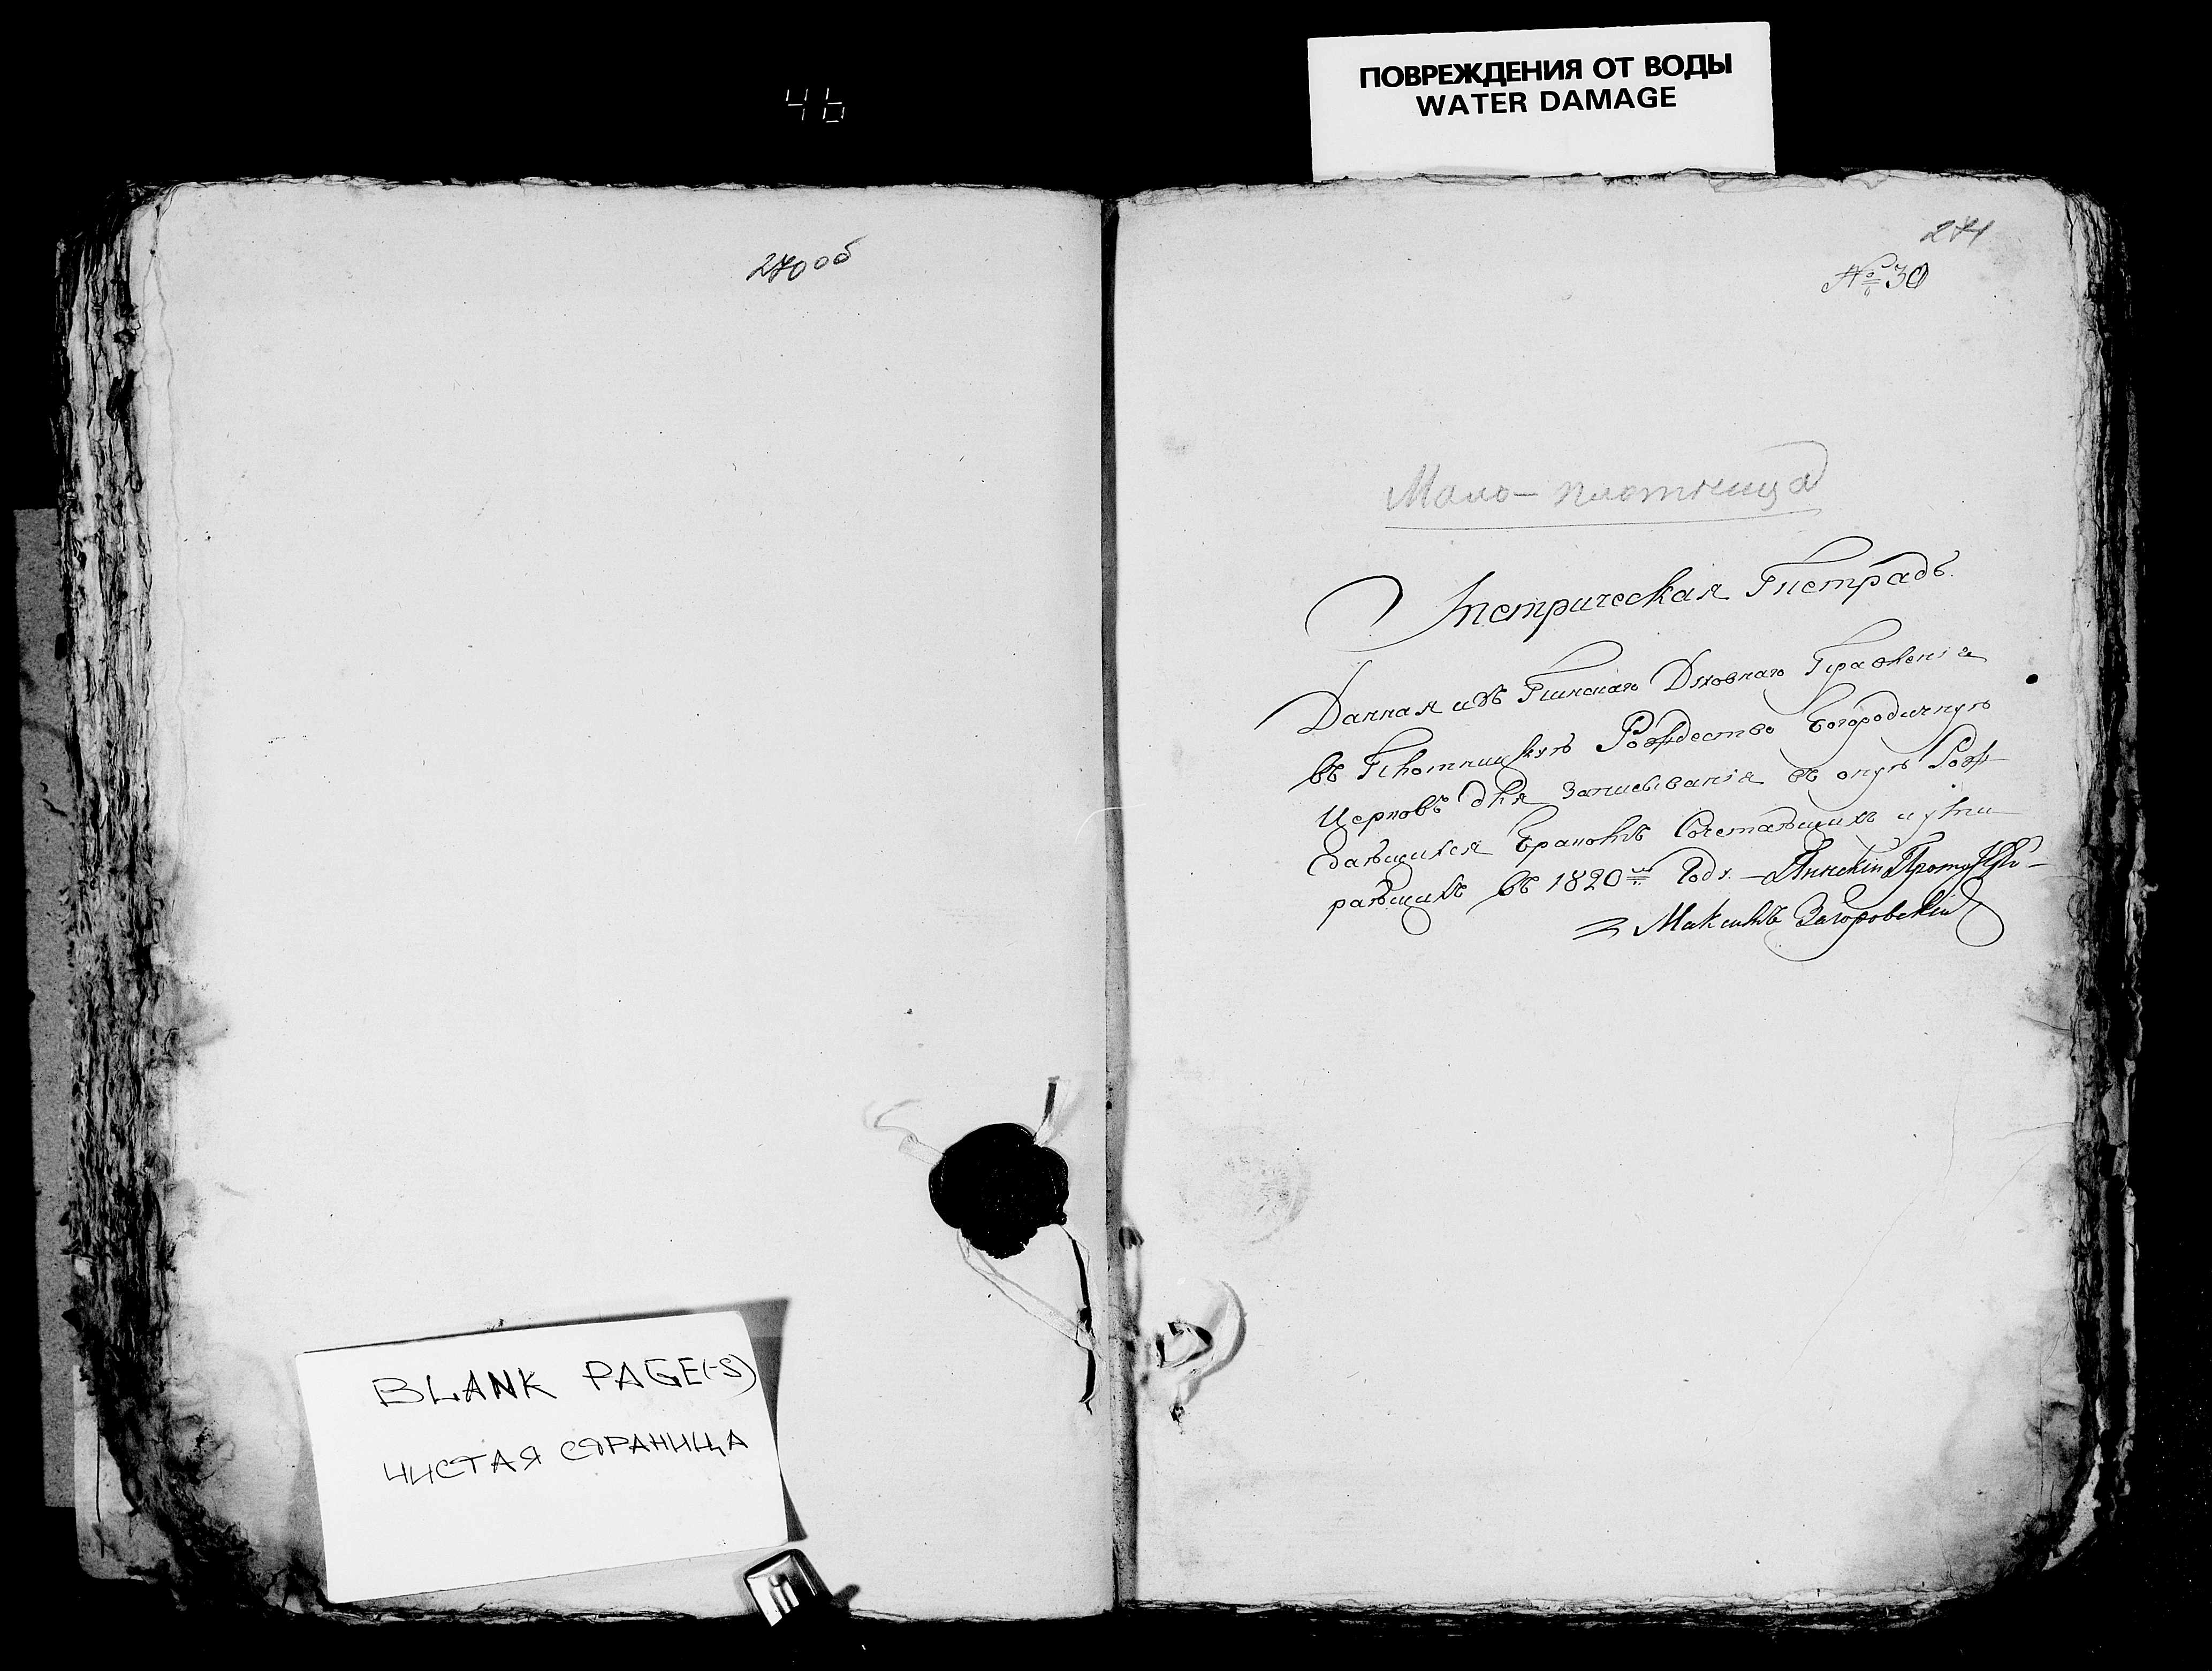 46
ПОВРЕЖДЕНИЯ ОТ ВОДЫ
WATER DAMAGE
270об
271
№ 30
Мало-плотница
Метрическая Тетрадь.
Данная изъ Пинскаго Духовнаго Правленія
въ Плотницкую Рождество Богородичную
Церковь для Записыванія въ оную Рож
давшихся Бракомъ Сочетавшихъ и уми
равшихъ въ 1820м Году. – Пинскій
Максимъ Загоровскій
BLANK PAGE(-S)
ЧИСТАЯ СТРАНИЦА